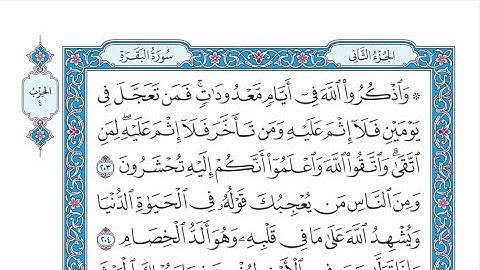 الجُزْءُ الثَّانِى
سُورَةُ البَقَرَةِ
الحِزْبُ
٤
۞ وَاذْكُرُوا اللَّهَ فِى أَيَّامٍ مَّعْدُودَاتٍ ۚ فَمَن تَعَجَّلَ فِى
يَوْمَيْنِ فَلَا إِثْمَ عَلَيْهِ وَمَن تَأَخَّرَ فَلَا إِثْمَ عَلَيْهِ ۖ لِمَنِ
اتَّقَىٰ ۗ وَاتَّقُوا اللَّهَ وَاعْلَمُوا أَنَّكُمْ إِلَيْهِ تُحْشَرُونَ ٢٠٣
وَمِنَ النَّاسِ مَن يُعْجِبُكَ قَوْلُهُ فِى الْحَيَاةِ الدُّنْيَا
وَيُشْهِدُ اللَّهَ عَلَىٰ مَا فِى قَلْبِهِ وَهُوَ أَلَدُّ الْخِصَامِ ٢٠٤